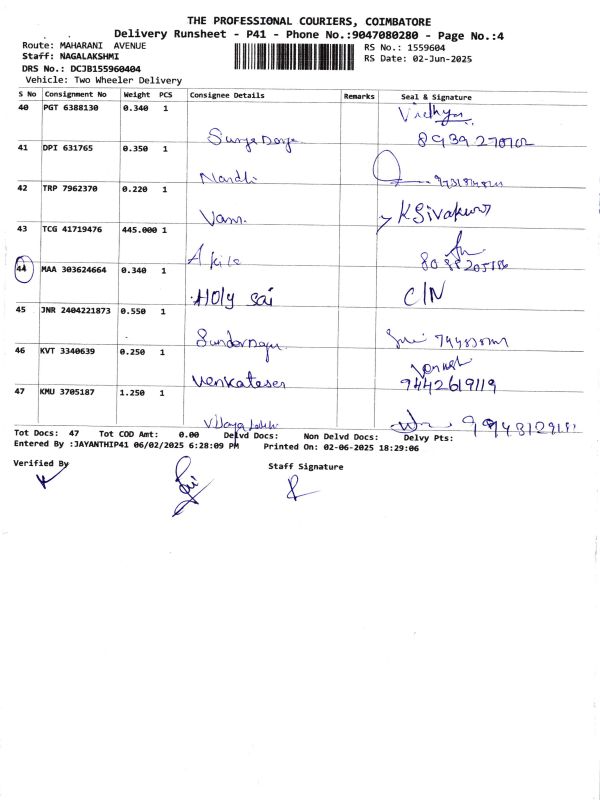 THE PROFESSIONAL COURIERS, COIMBATORE
Delivery Runsheet - P41 - Phone No.:9047080280 - Page No.:4
Route: MAHARANI AVENUE
RS No.: 1559604
Staff: NAGALAKSHMI
RS Date: 02-Jun-2025
DRS No.: DCJB155960404
Vehicle: Two Wheeler Delivery
S No Consignment No Weight PCS Consignee Details Remarks Seal & Signature
40 PGT 6388130 0.340 1
41 DPI 631765 0.350 1
Nandhi
42 TRP 7962370 0.220 1
K Sivakumar
43 TCG 41719476 445.000 1
Akila
44 MAA 303624664 0.340 1
Holy Sai C/N
45 JNR 2404221873 0.550 1
46 KVT 3340639 0.250 1
Venkatesen 9442619119
47 KMU 3705187 1.250 1
Tot Docs: 47 Tot COD Amt: 0.00 Delvd Docs: Non Delvd Docs: Delvy Pts:
Entered By :JAYANTHIP41 06/02/2025 6:28:09 PM Printed On: 02-06-2025 18:29:06
Verified By Staff Signature